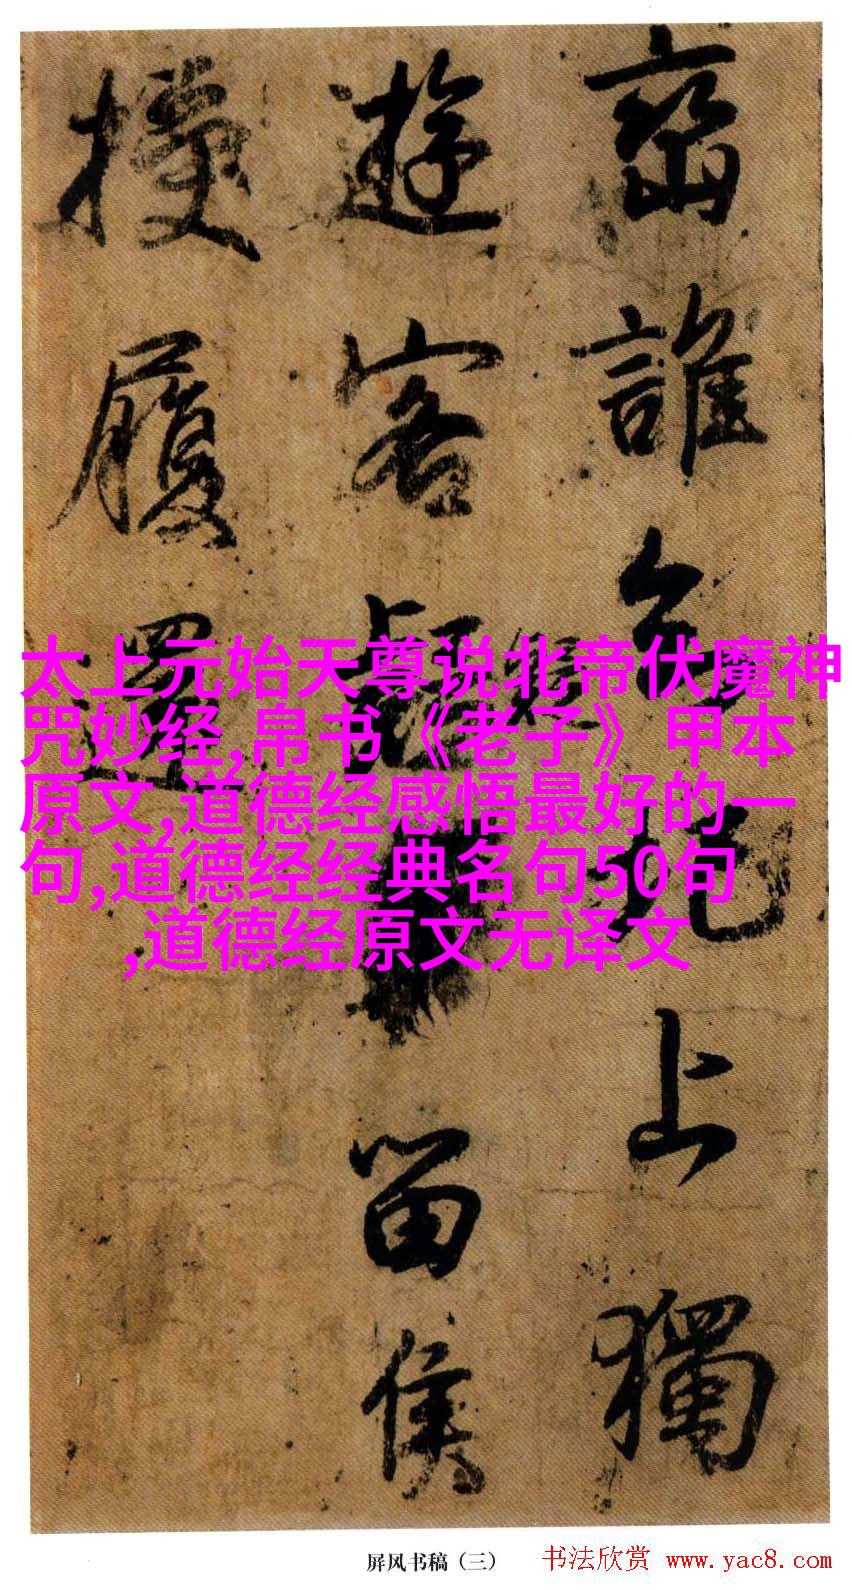 誰
上獨
遊客
留侯
履
太上元始天尊说北帝伏魔神
咒妙经,帛书《老子》甲本
原文,道德经感悟最好的一
句,道德经经典名句50句
,道德经原文无译文
屏风书稿（三）
书法欣赏 www.yac8.com